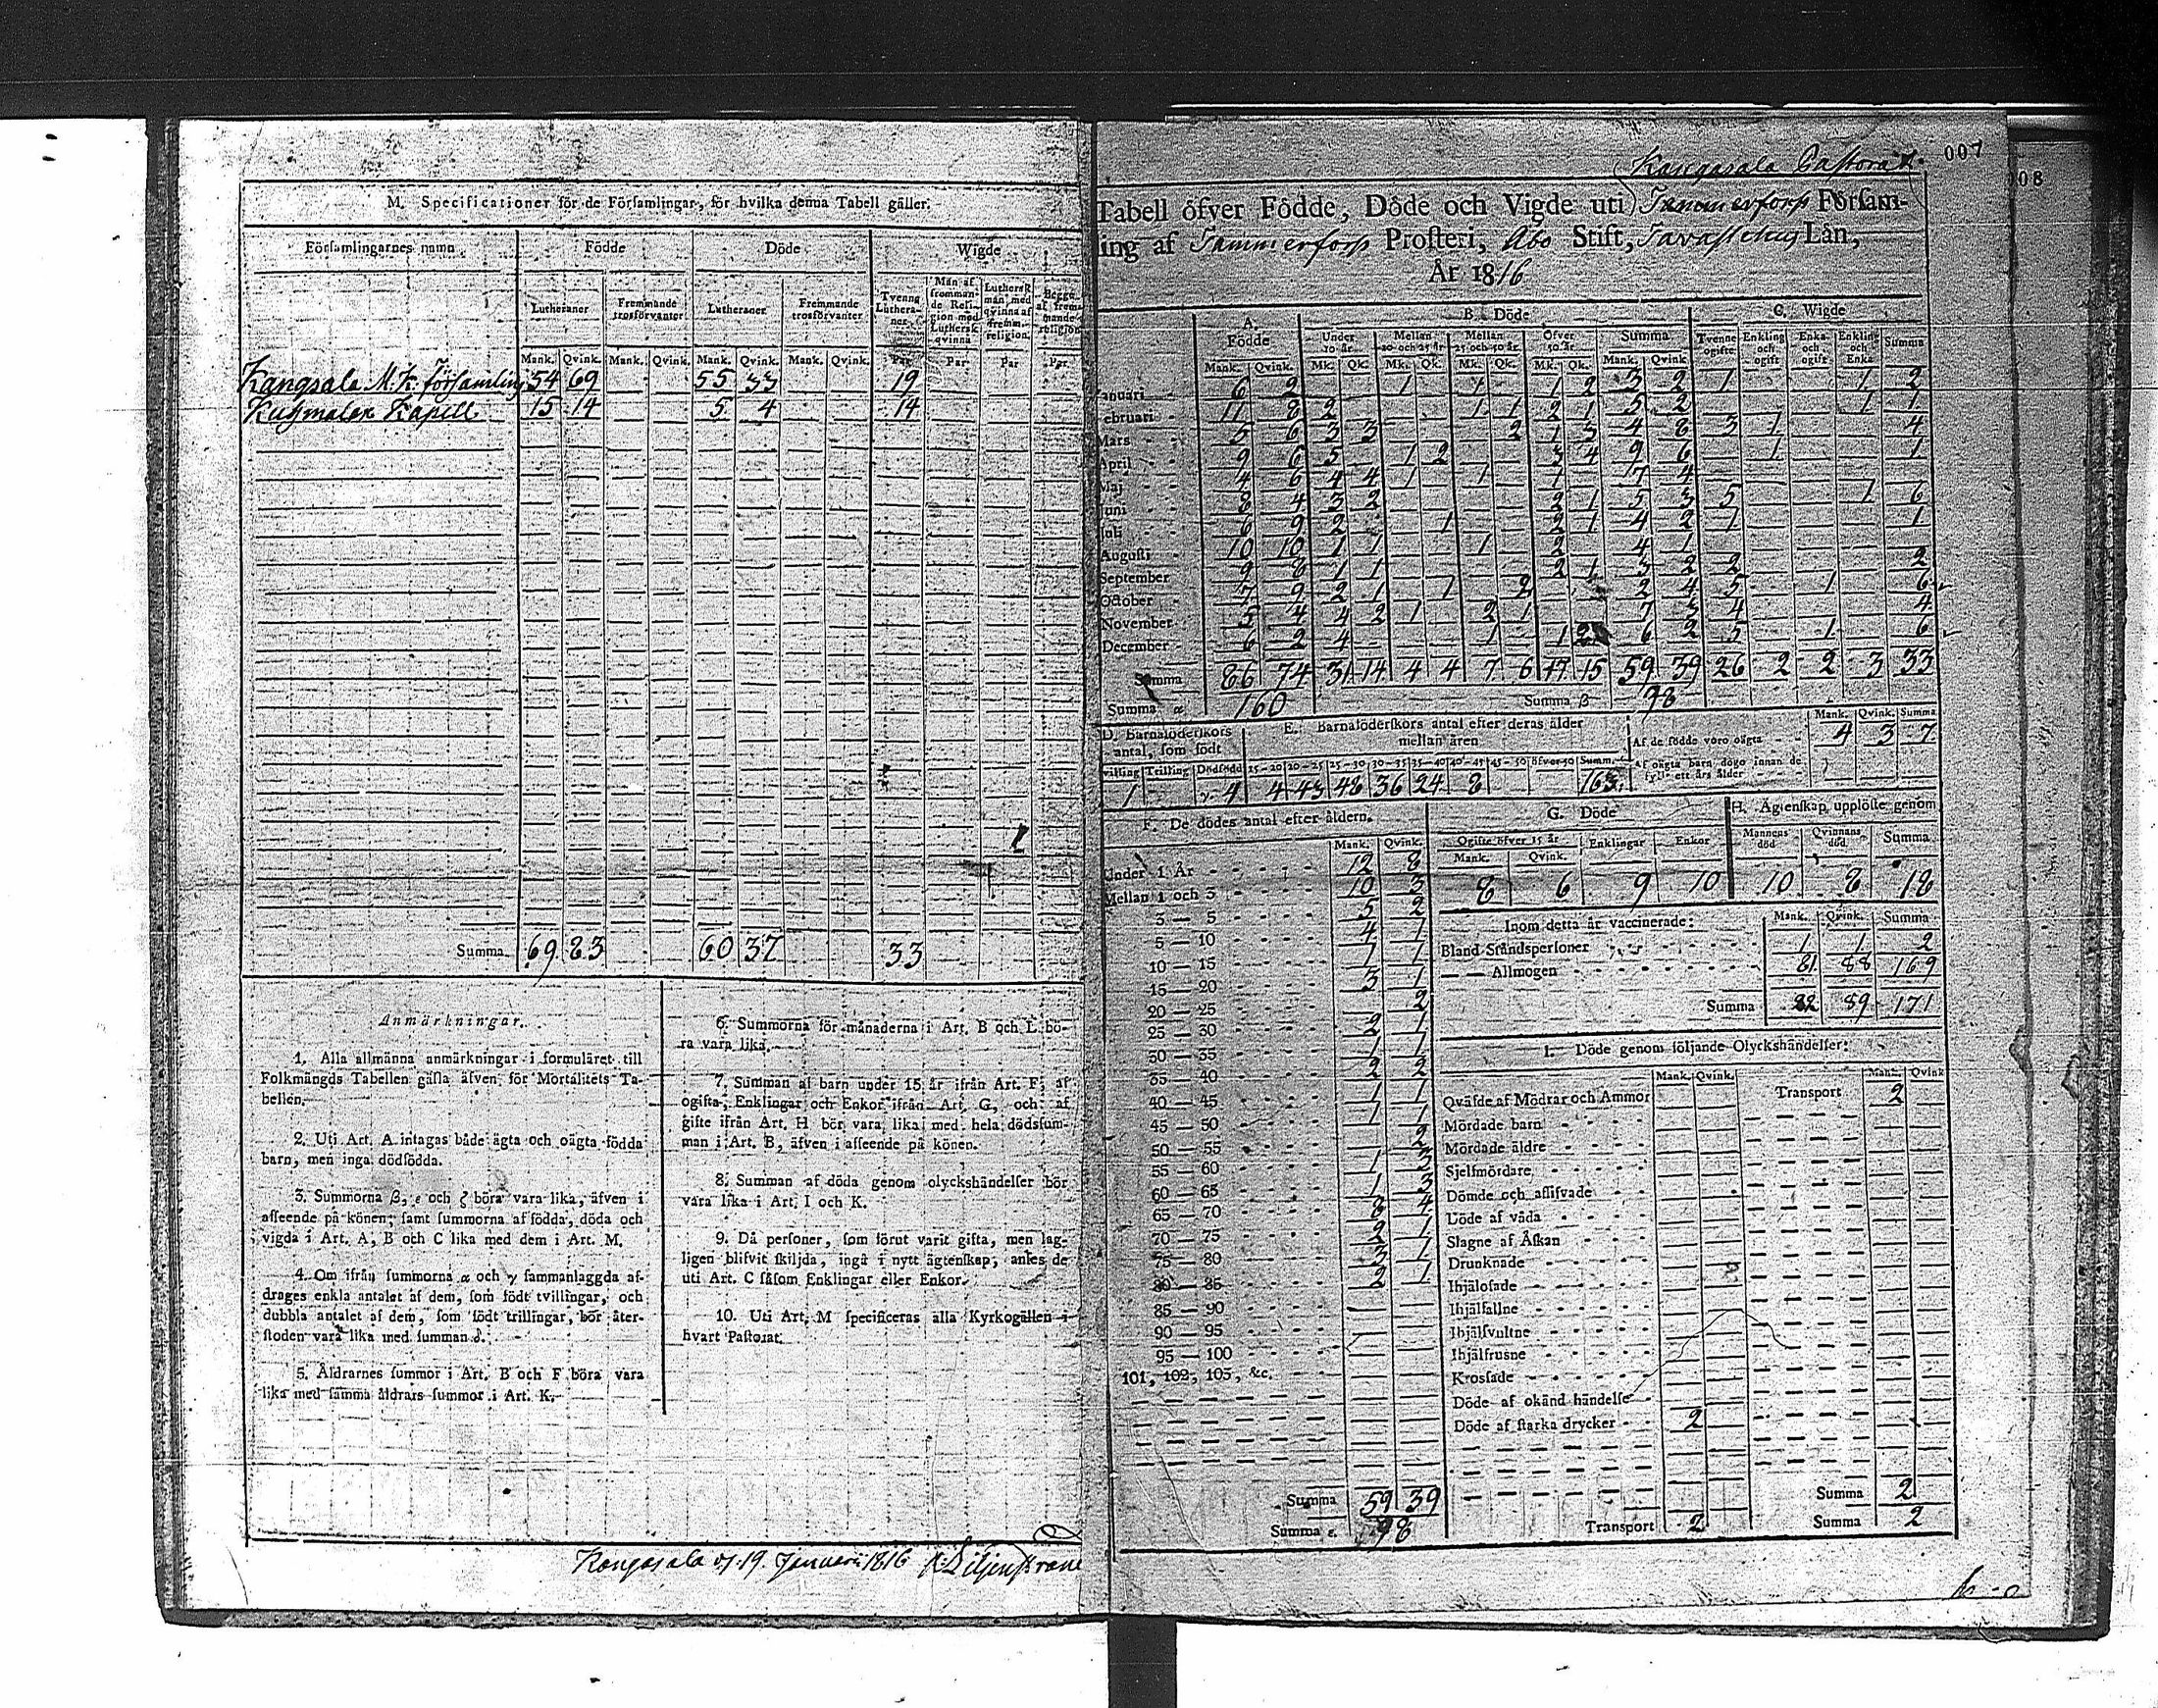 M. Specificationer för de Församlingar, för hvilka denna Tabell gäller.
Församlingarnes namn. Födde Döde Wigde
Lutheraner Fremmande trosförvanter Lutheraner Fremmande trosförvanter Tvenne Lutheraner Män af fremmande Religion med Luthersk qvinna Luthersk man med qvinna af fremm. religion.
Mank. Qvink. Mank. Qvink. Mank. Qvink. Mank. Qvink. Par Par Par Par
Kangsala M.K. församling 54 69 55 33 19
Kuhmalax Kapell 15 14 5 4 14
Summa 69 83 60 37 33
Anmärkningar.
1. Alla allmänna anmärkningar i formuläret till
Folkmängds Tabellen gälla äfven för Mortalitets Ta-
bellen.
2. Uti Art. A intagas både ägta och oägta födda
barn, men inga dödfödda.
3. Summorna β, ε och ζ böra vara lika, äfven i
afseende på könen; samt summorna af födda, döda och
vigda i Art. A, B och C lika med dem i Art. M.
4. Om ifrån summorna α och γ sammanlaggda af-
drages enkla antalet af dem, som födt tvillingar, och
dubbla antalet af dem, som födt trillingar, bör åter-
stoden vara lika med summan δ.
5. Åldrarnes summor i Art. B och F böra vara
lika med samma åldrars summor i Art. K.
6. Summorna för månaderna i Art. B och L bö-
ra vara lika.
7. Summan af barn under 15 år ifrån Art. F, af
ogifta, Enklingar och Enkor ifrån Art. G, och af
gifte ifrån Art. H bör vara lika med hela dödssum-
man i Art. B, äfven i afseende på könen.
8. Summan af döda genom olyckshändelser bör
vara lika i Art. I och K.
9. Då personer, som förut varit gifta, men lag-
ligen blifvit skiljda, ingå i nytt ägtenskap, antes de
uti Art. C såsom Enklingar eller Enkor.
10. Uti Art. M specificeras alla Kyrkogällen i
hvart Pastorat.
Kangasala 19. Januarii 1816
007
008
Kangasala Pastorat.
Tabell öfver Födde, Döde och Vigde uti Tammerfors Församl-
ing af Tammerfors Prosteri, Åbo Stift, Tavastehus Län,
År 1816
A. Födde B. Döde C. Wigde
Under 10 år. Mellan 10 och 25 år Mellan 25 och 50 år. Öfver 50 år. Summa Tvenne ogifte Enkling och ogift Enka och ogift Enkling och Enka Summa
Mank. Qvink. Mk. Qk. Mk. Qk. Mk. Qk. Mk. Qk. Mank. Qvink.
Januari 6 2 1 1 1 2 3 2 1 1 2
Februari 11 8 2 1 1 2 1 5 2 1 1
Mars 5 6 3 3 2 1 3 4 8 3 1 4
April 9 6 5 1 2 3 4 9 6 1 1
Maj 4 6 4 4 1 1 1 7 4
Juni 8 4 3 2 2 1 5 3 5 1 6
Juli 6 9 2 1 2 1 4 2 1 1
Augusti 10 10 1 1 1 2 4 1
September 9 8 1 1 2 1 3 2 2 2
October 7 9 2 1 1 2 2 4 5 1 6
November 5 4 4 2 1 2 1 7 3 4 4
December 6 2 4 1 1 2 6 2 5 1 6
Summa 86 74 31 14 4 4 7 6 17 15 59 39 26 2 2 3 33
Summa α 160 Summa β 98
D. Barnaföderskors antal, som födt
Tvilling Trilling Dödfödd
1 γ 4
E. Barnaföderskors antal efter deras ålder mellan åren
15-20 20-25 25-30 30-35 35-40 40-45 45-50 öfver 50 Summ.
4 43 48 36 24 8 163
Mank. Qvink. Summa
Af de födde voro oägta 4 3 7
Af oägta barn dogo innan de
fyllt ett års ålder
F. De dödes antal efter åldern.
Mank. Qvink.
Under 1 År 12 8
Mellan 1 och 3 10 3
3 — 5 5 2
5 — 10 4 1
10 — 15 1 1
15 — 20 3 1
20 — 25 2
25 — 30 2 1
30 — 35 1 1
35 — 40 2 2
40 — 45 1 1
45 — 50 1 1
50 — 55 2
55 — 60 1 3
60 — 65 1 3
65 — 70 8 4
70 — 75 2 1
75 — 80 3 1
80 — 85 2 1
85 — 90
90 — 95
95 — 100
101, 102, 105, &c.
Summa 59 39
Summa ε. 98
G. Döde
Ogifte öfver 15 år Enklingar Enkor
Mank. Qvink.
8 6 9 10
H. Ägtenskap upplöste genom
Mannens död Qvinnans död. Summa
10 8 18
Inom detta år vaccinerade: Mank. Qvink. Summa
Bland Ståndspersoner 1 1 2
— — Allmogen 81 88 169
Summa 82 89 171
I. Döde genom följande Olyckshändelser:
Mank. Qvink. Mank. Qvink
Qväfde af Mödrar och Ammor Transport 2
Mördade barn
Mördade äldre
Sjelfmördare
Dömde och aflifvade
Döde af våda
Slagne af Åskan
Drunknade
Ihjälosade
Ihjälfallne
Ihjälsvultne
Ihjälfrusne
Krossade
Döde af okänd händelse
Döde af starka drycker 2
Summa 2
Transport 2 Summa 2